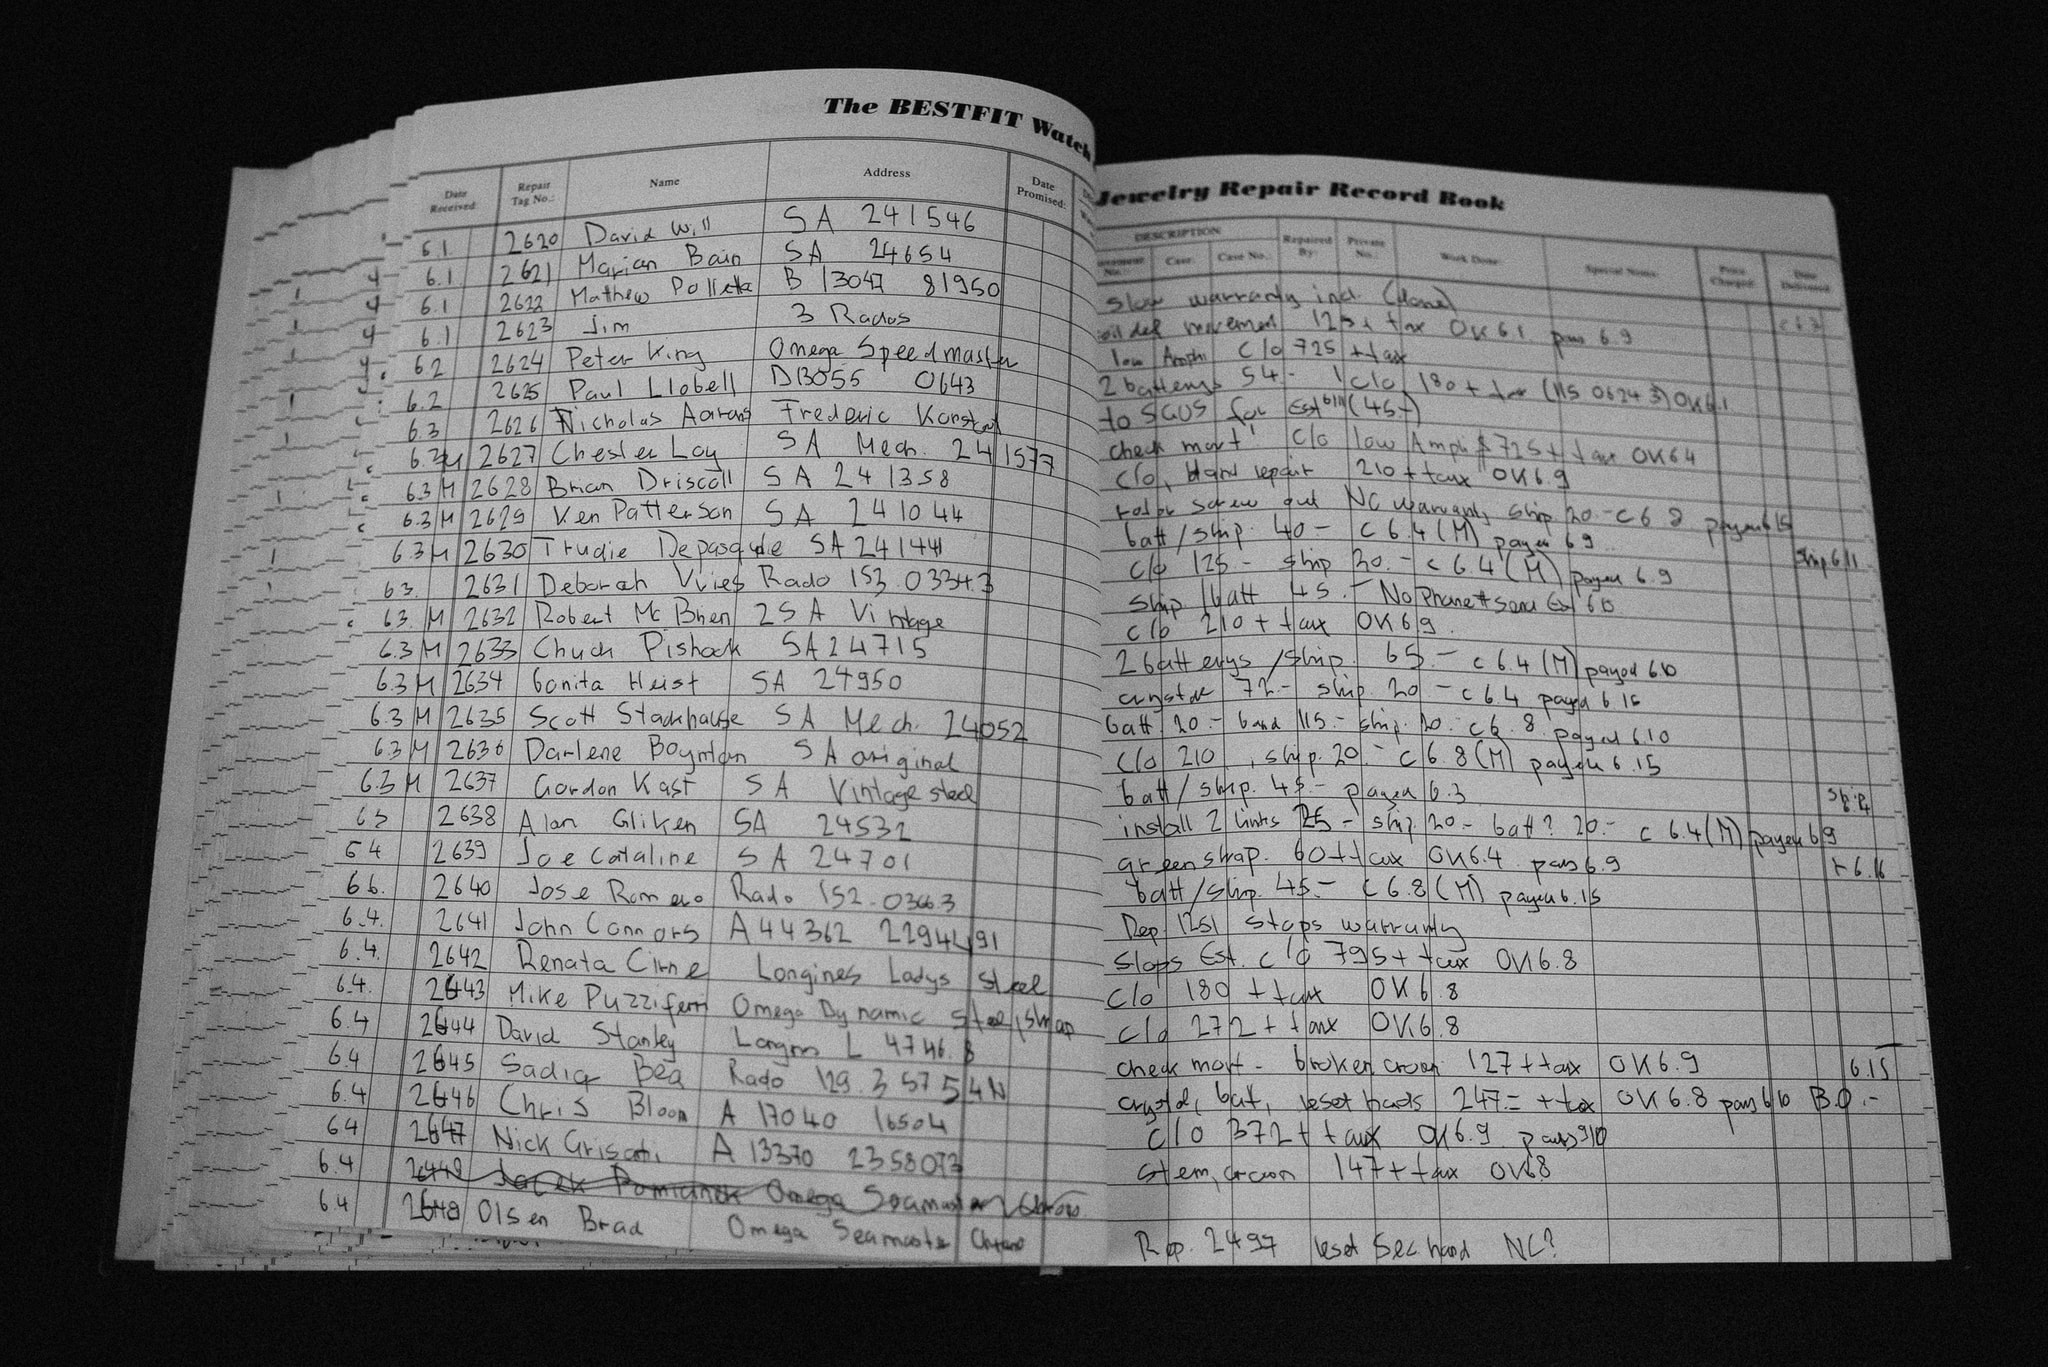 The BESTFIT Watch
Date Received: Repair Tag No.: Name Address Date Promised:
6.1. 2620 David Will SA 241546
6.1 2621 Marian Bain SA 24654
6.1 2622 Mathew B 13047 81950
6.1 2623 Jim 3 Rados
6.2 2624 Peter King Omega Speedmaster
6.2 2625 Paul Llobell DB055 0643
6.3 2626 Nicholas Aarons Frederic
6.3 M 2627 Chester Loy SA Mech. 241577
6.3 M 2628 Brian Driscoll SA 241358
6.3 M 2629 Ken Patterson SA 241044
6.3 M 2630 Trudie Depasquale SA 241441
6.3. 2631 Deborah Vries Rado 153.0334.3
6.3. M 2632 Robert Mc Brien 2 SA Vintage
6.3 M 2633 Chuck Pishock SA 24715
6.3 M 2634 Bonita Heist SA 24950
6.3 M 2635 Scott Stackhouse SA Mech. 24052
6.3 M 2636 Darlene Boynton SA original
6.3 M 2637 Gordon Kast SA Vintage steel
6.3 2638 Alan Gliken SA 24532
6.4 2639 Joe Cataline SA 24701
6.6. 2640 Jose Romero Rado 152.0366.3
6.4. 2641 John Connors A44362 2294491
6.4. 2642 Renata Cirne Longines Ladys steel
6.4. 2643 Mike Omega Dynamic steel, strap
6.4 2644 David Stanley L 4746.8
6.4 2645 Sadiq Bea Rado 129 3 57 54N
6.4 2646 Chris Bloom A 17040 16504
6.4 2647 Nick Grisati A 13370 2358073
6.4 Omega Seamaster
6.4 2648 Olsen Brad Omega Seamaster Chrono
Jewelry Repair Record Book
DESCRIPTION
Case: Case No.: Repaired By: Private No.: Work Done: Special Notes: Price Charged: Date Delivered:
slow warranty incl. (done)
movement 125+ tax OK 6.1. pays 6.9
low Amph c/o 725 + tax
2 batterys 54.- 1 c/o 180 + tax (115 0624 3) OK 6.1
to SGUS for Est (45.-)
check movt c/o low Ampli $725 + tax OK 6.4
c/o, Hand repair 210 + tax OK 6.9
rotor screw out NC warranty ship 20.- c 6.8 payed 6.15
batt/ship. 40.- c 6.4 (M) payed 6.9
c/o 125.- ship 20.- c 6.4 (M) payed 6.9 ship 6.11
ship/batt 45.- No Phone# send Est 6.10
c/o 210 + tax OK 6.9.
2 batterys/ship. 65.- c 6.4 (M) payed 6.10
crystal 72.- ship. 20.- c 6.4 payed 6.15
batt 20.- band 115.- ship. 20.- c 6.8. payed 6.10
c/o 210, ship. 20.- c 6.8 (M) payed 6.15
batt/ship. 45.- payed 6.3 ship
install 2 links 25.- ship. 20.- batt? 20.- c 6.4 (M) payed 6.9
green strap. 60 + tax OK 6.4. pays 6.9 r 6.16
batt/ship. 45.- c 6.8 (M) payed 6.15
Rep. 1251 stops warranty
Stops Est. c/o 795 + tax OK 6.8
c/o 180 + tax OK 6.8
c/o 272 + tax OK 6.8
check movt - broken crown 127 + tax OK 6.9 6.15
crystal, bat, reset hands 247.= + tax OK 6.8 pays 6.10 B.O.-
c/o 372 + tax OK 6.9. pays 9.10
stem, crown 147 + tax OK 6.8
Rep. 2497 reset sec hand NC?